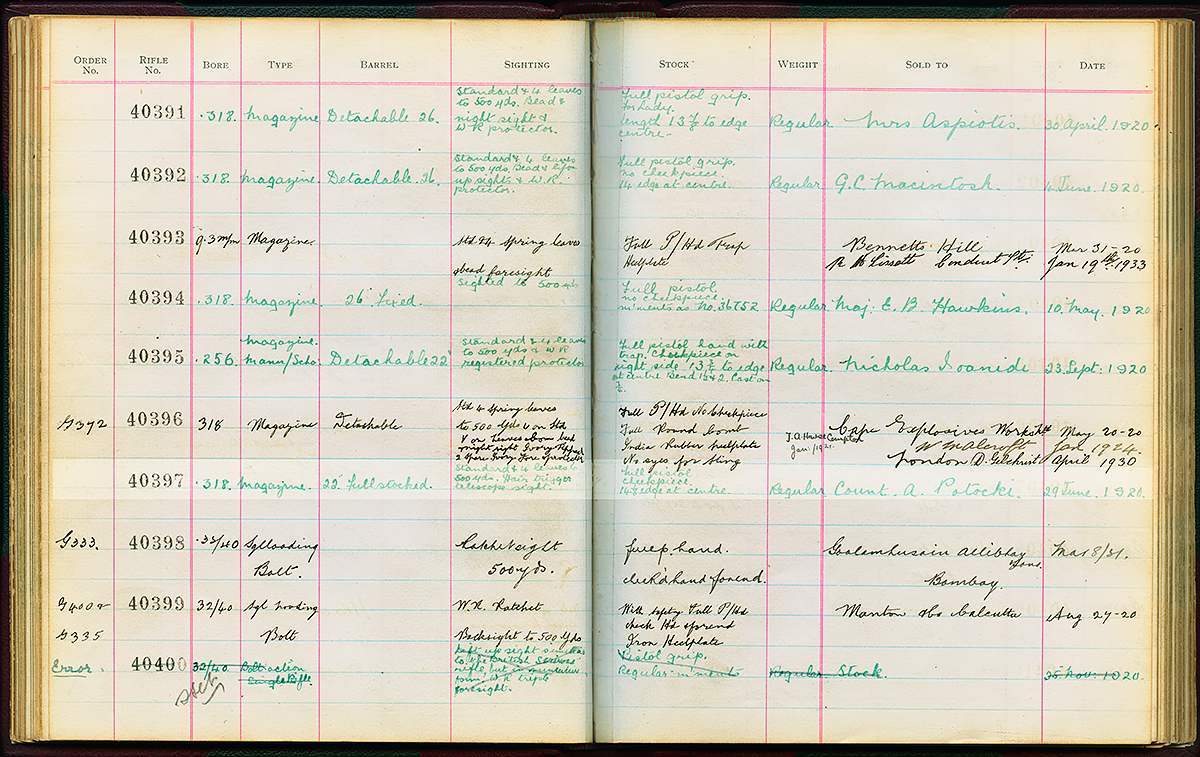 ORDER No. RIFLE No. BORE TYPE BARREL SIGHTING STOCK WEIGHT SOLD TO DATE
Standard & 4 leaves Full pistol grip.
to 500 yds. Bead & for Lady.
40391 .318. Magazine Detachable 26. night sight & length 13 to edge Regular. Mrs Aspiotis. 30 April. 1920
W R protector. centre
Standard & 4 leaves Full pistol grip.
to 500 yds. Bead & no cheekpiece.
40392 .318. Magazine. Detachable. 26. up sight & W.R. 14 edge at centre. Regular G.C. Macintosh. June. 1920.
protector.
40393 9.3 m/m Magazine. Std & 4 Spring leaves Full P/Hd Trap Bennetts Hill Mar 31-20
Heelplate R. Lissett Conduit St. Jan 19th 1933
bead foresight
sighted to 500 yds Full pistol
no cheekpiece.
40394 .318. Magazine. 26" Fixed. m'ments as No. 36752 Regular Maj: E. B. Hawkins. 10 May. 1920
Magazine. Standard & 4 leaves Full pistol hand with
40395 .256. Mann/Scho. Detachable 22" to 500 yds & W R trap. Cheekpiece on
registered protector right side 13 to edge Regular. Nicholas Ioanidi 23. Sept: 1920
at centre. Bend 1 & 2. Cast on
Std 4 Spring leaves Full P/Hd No Cheekpiece
G372 40396 318 Magazine Detachable to 500 yds V on Std Full Round Comb Cape Explosives Works May 20-20
V on Leaves India Rubber heelplate 1924.
No eyes for sling London D. Gilchrist April 1930
Standard & 4 leaves to Full pistol
40397 .318. Magazine. 22" full stocked. 500 yds. Hair trigger cheekpiece.
telescope sight. 14 edge at centre. Regular Count. A. Potocki. 29 June. 1920.
G333. 40398 .32/40 Sgl loading Ratchet sight full p. hand. Goolamhusain Allibhoy Mar 8/21.
Bolt. 500 yds. Sons.
check'd hand forend. Bombay.
G400 40399 32/40 Sgl loading W.R. Ratchet With safety Full P/Hd Manton & Co Calcutta Aug 27-20
check Hd & forend
G335 Bolt Backsight to 500 yds Iron Heelplate
Left up sight similar Pistol grip.
Error. 40400 32/40 Bolt action to the British Service Regular m'ments Regular Stock. 25 Nov: 1920
Single Rifle. rifle but in miniature
form W.R.
foresight.